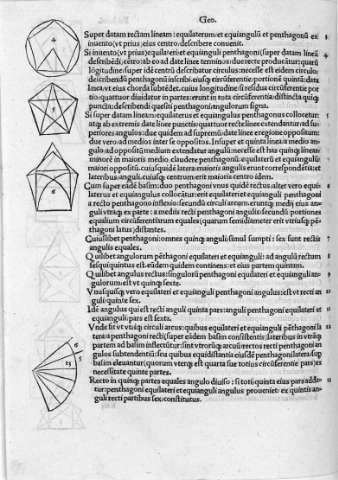 Geo.
Super datam rectam lineam: equilaterum et equiangulũ et penthagonũ ex 3
intento; vt prius; eius centro: describere convenit.
Si intento; vt prius; equilateri et equianguli penthagoni; super datam lineã 4
describẽdi; cẽtro: ab eo ad date linee terminos: due recte producãtur; quarũ
lõgitudine super idẽ centrũ describatur circulus: necesse est eidem circulo:
describendi penthagonũ inscribi. eiusq circũferẽtie portionẽ quintã: data
linea. vt eius chorda subtẽdet. cuius longitudine si residua circũferentie por
tio: quattuor diuidatur in partes: erunt in tota circũferẽtia: distincta quinq
puncta: describendi quesiti penthagoni angulorum signa.
Si super datam lineam: equilaterus et equiangulus penthagonus collocetur: 5
atq ab extremis date linee punctis: quattuor recte linee extendantur ad su-
periores angulos: due quidem ad supremũ: date linee e regione oppositum:
due vero ad medios inter se oppositos. Insuper et quinta linea: a medio an-
gulo ad oppositũ medium extendatur angulũ: necesse est
minorẽ in maioris medio: claudere penthagonũ: equilaterũ et equiangulũ:
maiori oppositũ. cuiusquidẽ latera maioris angulis erunt correspondẽtia: et
lateribus anguli. cuiusq centrum: erit maioris centro idem.
Cum super eidẽ basim: duo penthagoni
laterus et equiangulus collocãtur: erit equilateri et equianguli penthagoni
a recto penthagono inflexio: secundũ circuli arcum. eruntq medij eius an-
guli vtráq ex parte: a medijs recti penthagoni angulis: secundũ portiones
equalium circũferentiarum equales; quarum semidiameter erit vtriusq pẽ-
thagoni latus; distantes.
Cuiuslibet penthagoni: omnes quinq anguli; simul sumpti: sex sunt rectis 7
angulis equales.
Quilibet angulorum pẽthagoni equilateri et equianguli: ad angulũ rectum 8
sesquiquintus est. eũdem quidem continens: et eius partem quintam.
Quilibet angulus rectus: singulos penthagoni equilateri et equianguli an- 9
gulorum: est vt quinq: sexte.
Vnusquisq vero equilateri et equianguli penthagoni angulus: est vt recti an
guli quinte sex.
Idẽ angulus qui est recti anguli quinta pars: anguli penthagoni equilateri et
equianguli; pars est sexta.
Vnde fit vt vtriq circuli arcus: quibus equilateri et equianguli pẽthagoni la
tera: a penthagoni recti; super eidem basim consistentis; lateribus in vtrãq
partem ad basim inflectũtur
gulos subtendentiũ: seu quibus equidistantis eiusdẽ penthagoni latera: sup
basim eleuantur; quorum vterq est quarta sue totius circũferentie pars: ex
necessitate quinte partes.
Recto in quinq partes equales angulo diuiso: si toti quinta eius pars adda-
tur: penthagoni equilateri et equianguli angulus proueniet: ex quintis an-
guli recti partibus sex: constitutus.
4
5
6